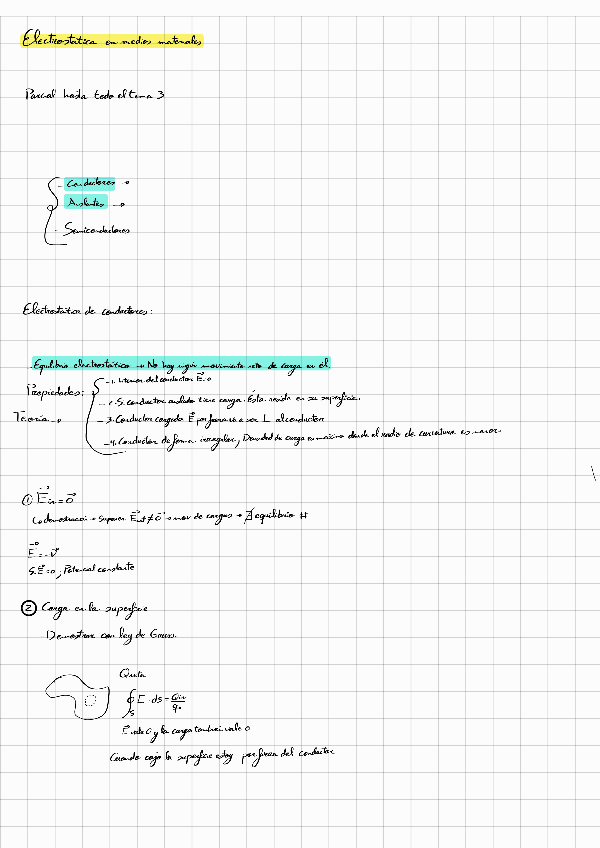 Electrostática en medios materiales
Parcial hasta todo el tema 3
- Conductores →
- Aislantes →
- Semiconductores
Electrostática de conductores:
Equilibrio electrostático → No hay ningún movimiento neto de carga en él.
Propiedades:
Teoría →
-1. Interior del conductor E=0
-2. Si conductor aislado tiene carga. Ésta reside en su superficie.
-3. Conductor cargado E por fuera va a ser ⊥ al conductor
-4. Conductor de forma irregular, Densidad de carga es máxima donde el radio de curvatura es menor
① E in = 0
↳ demostració → Suponer E int ≠ 0 → mov de cargas → ∄ equilibrio #
E = - V
Si E = 0, Potencial constante
② Carga en la superficie
Demostrar con ley de Gauss.
∮s E · ds =
E vale 0 y la carga también vale 0
Cuando cojo la superficie estoy por fuera del conductor